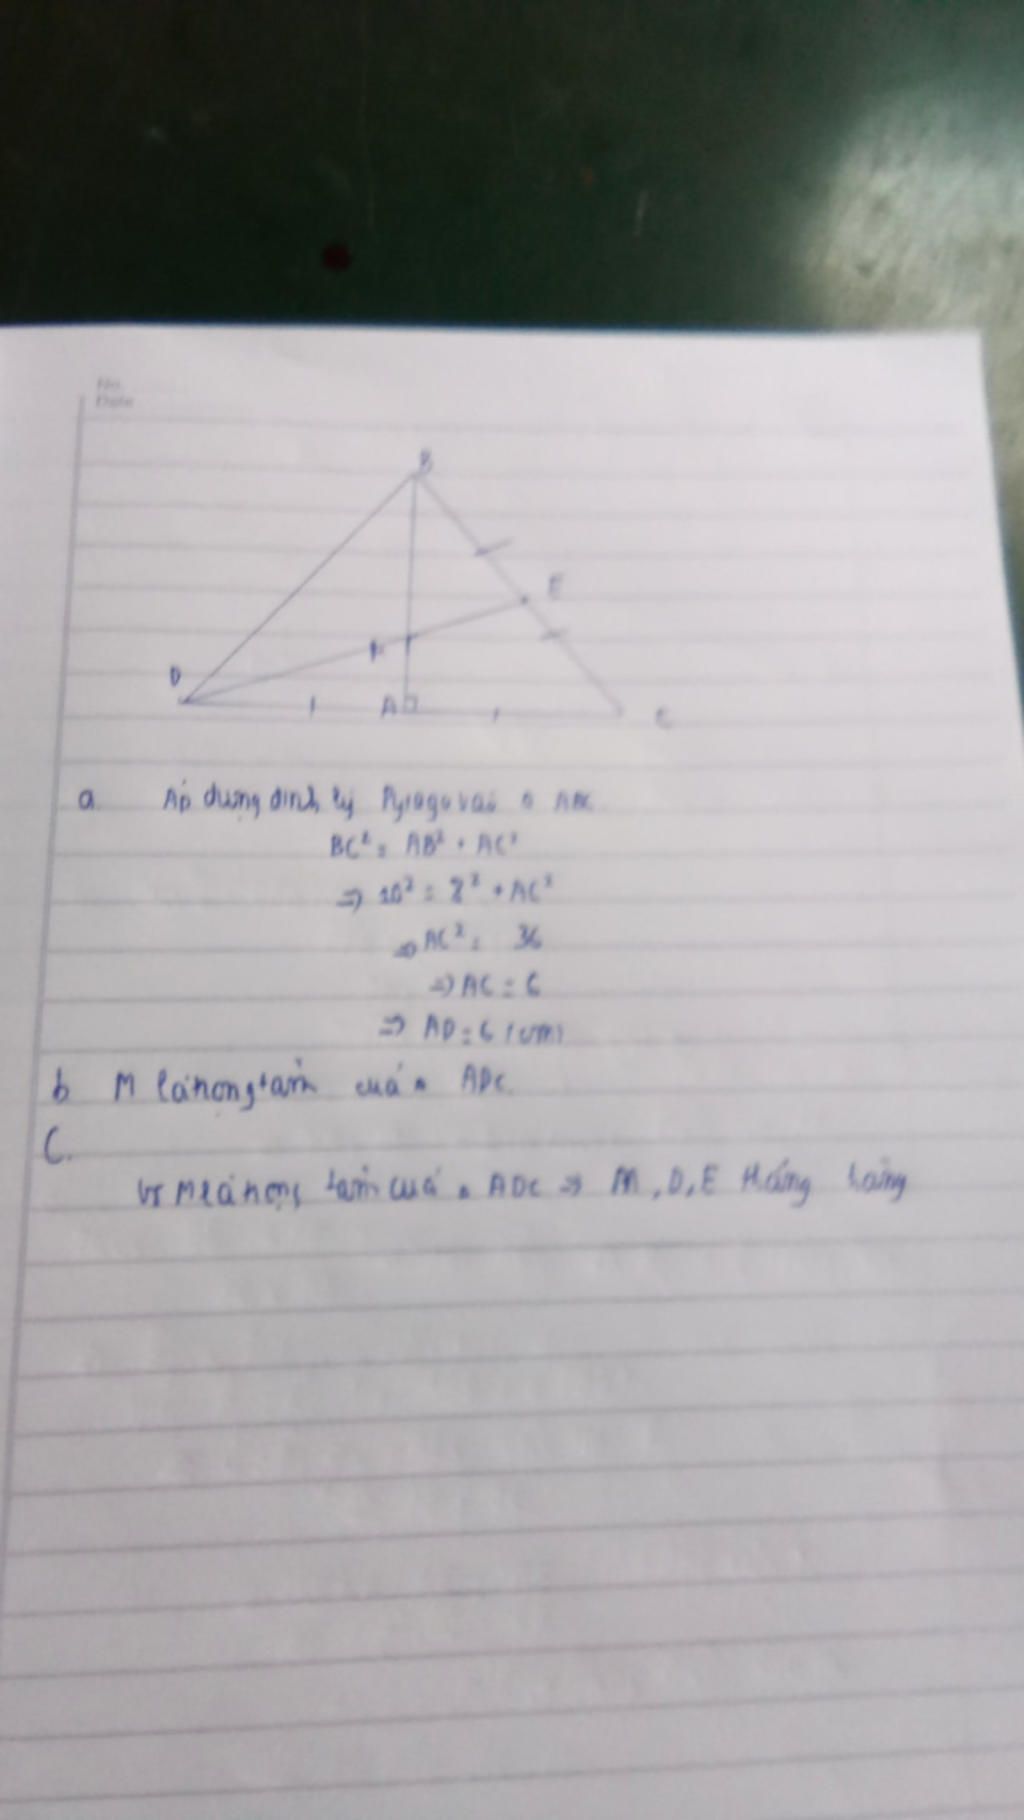 No.
Date
B
E
D
M
A
C
a. Áp dụng định lý Pytago vào Δ ABC
BC² = AB² + AC²
=> 10² = 8² + AC²
=> AC² = 36
=> AC = 6
=> AD = 6 (cm)
b M là trọng tâm của Δ ADC.
C.
Vì M là trọng tâm của Δ ADC => M, D, E thẳng hàng